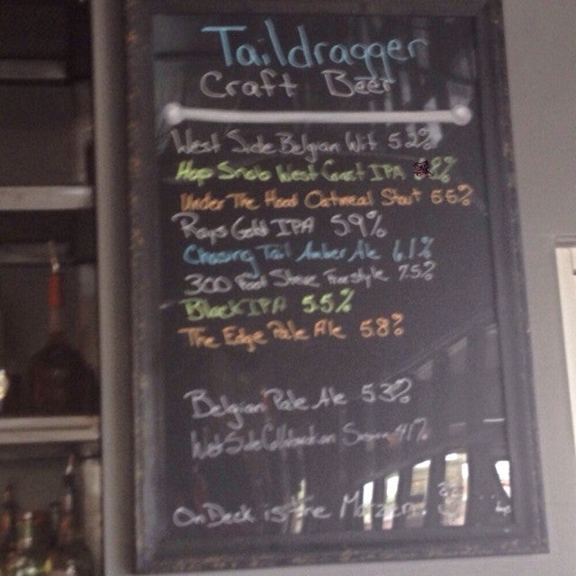 Taildragger
Craft Beer
West Side Belgian Wit 5.2%
Hop Snob West Coast IPA
Under The Hood Oatmeal Stout 5.5%
Rays Gold IPA 5.9%
Chasing Tail Amber Ale 6.1%
300 Foot Steve Freestyle 7.5%
Black IPA 5.5%
The Edge Pale Ale 5.8%
Belgian Pale Ale 5.3%
West Side Collaboration 4.1%
On Deck is the